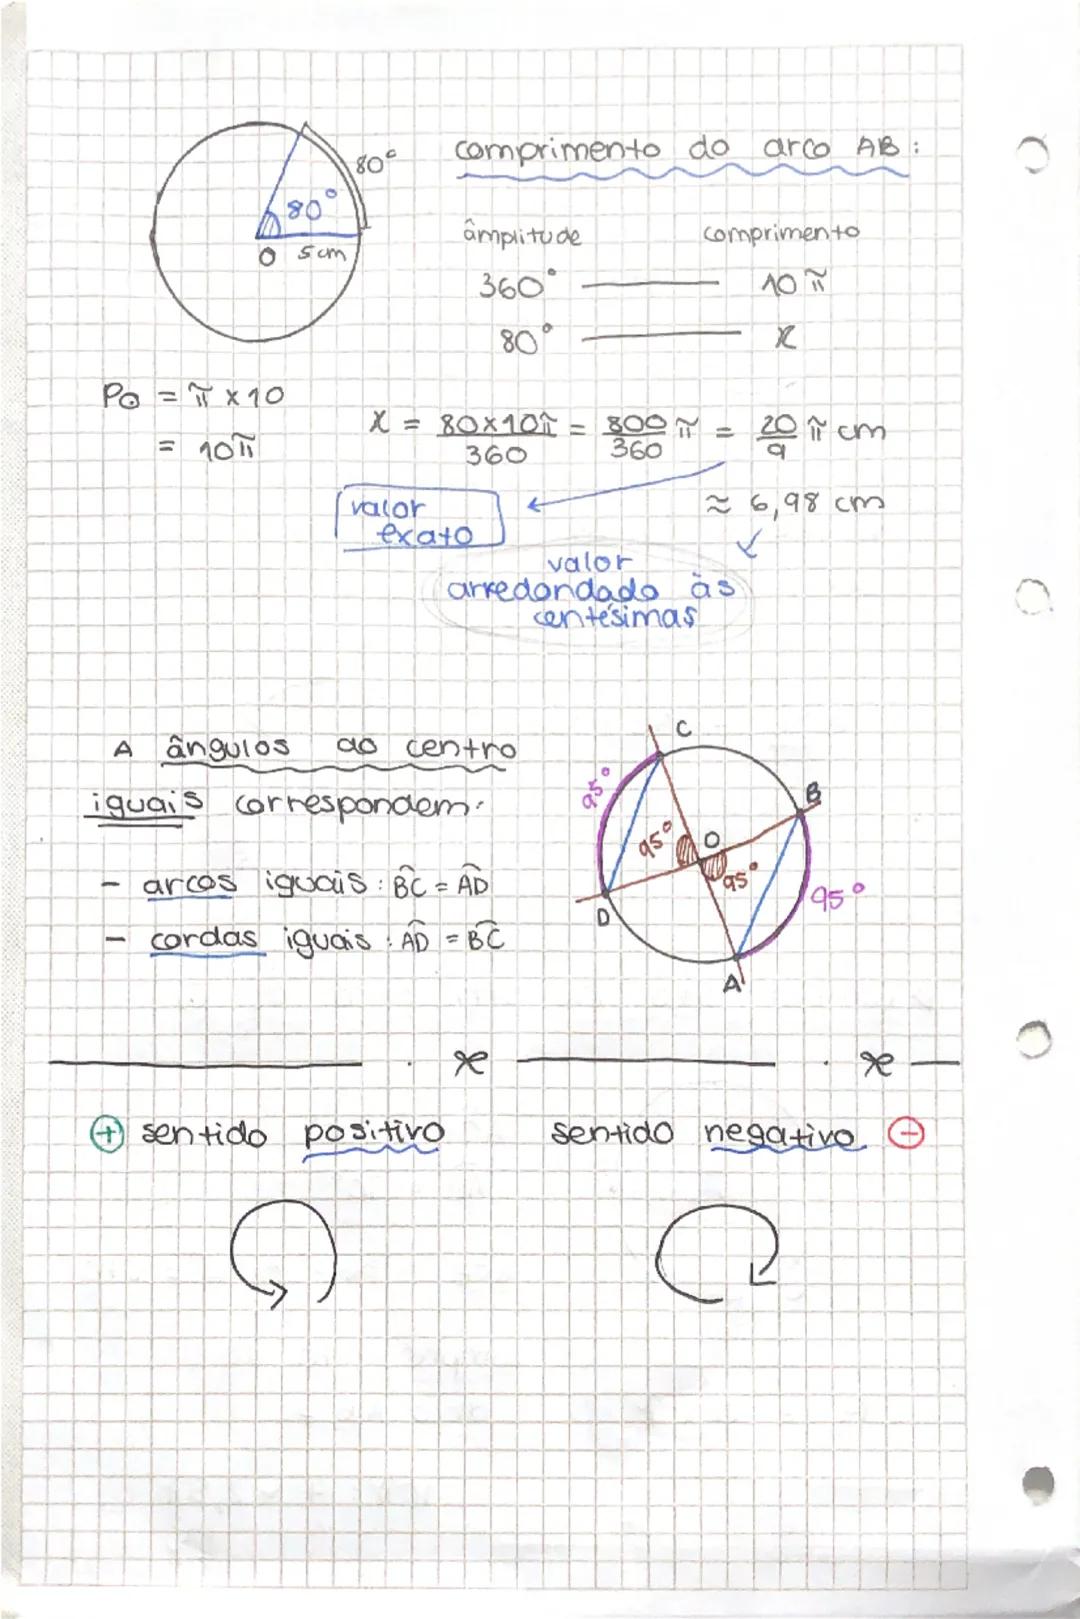 80°
80°
O 5cm
comprimento do arco AB:
âmplitude comprimento
360° 10π
80° x
P⊙ = π x 10
= 10π
x = 80x10π/360 = 800/360 π = 20/9 π cm
≈ 6,98 cm
valor
exato
valor
arredondado às
centésimas
A ângulos ao centro
iguais correspondem:
- arcos iguais: B͡C = A͡D
- cordas iguais: A͡D = B͡C
C
B
95°
95° O
95°
95°
D
A
⊕ sentido positivo
sentido negativo ⊖